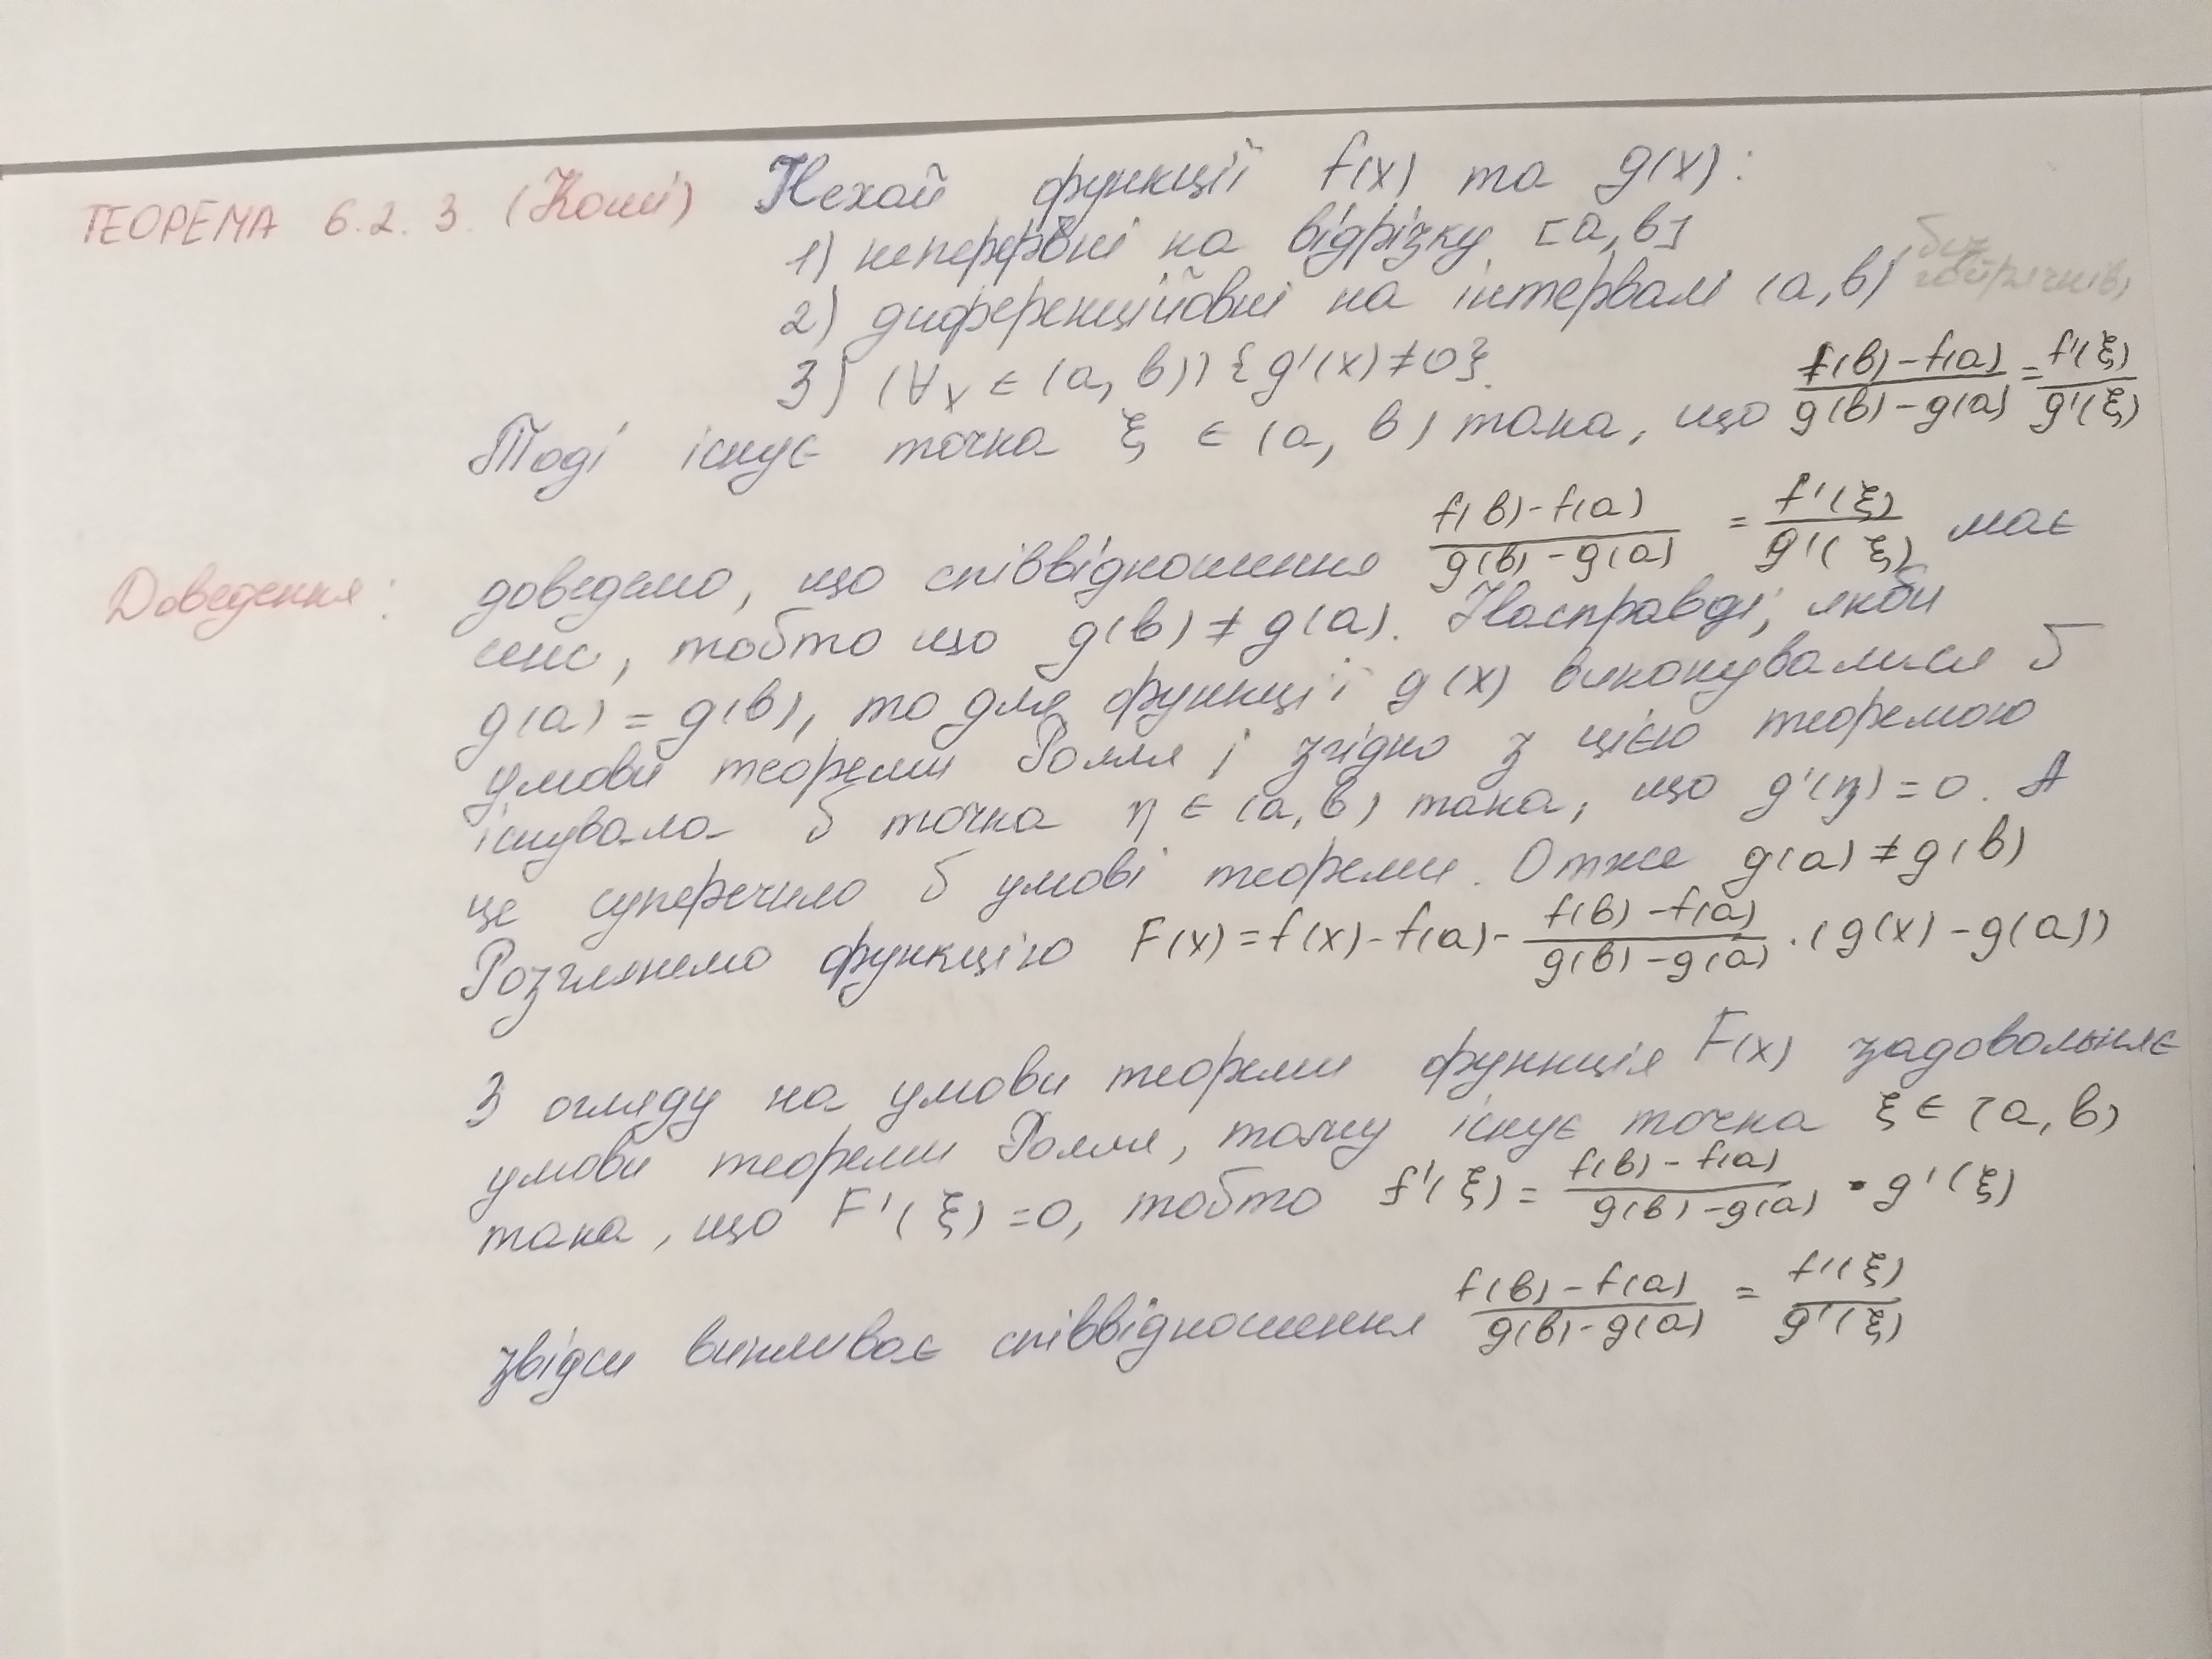 ТЕОРЕМА 6.2.3. (Коші) Нехай функції f(x) та g(x):
1) неперервні на відрізку [a, b]
2) диференційовні на інтервалі (a, b) без
3) (∀x ∈ (a, b)) {g'(x) ≠ 0}.
Тоді існує точка ξ ∈ (a, b) така, що (f(b) - f(a))/(g(b) - g(a)) = f'(ξ)/g'(ξ)
Доведення: доведемо, що співвідношення (f(b) - f(a))/(g(b) - g(a)) = f'(ξ)/g'(ξ) має
сенс, тобто що g(b) ≠ g(a). Насправді, якби
g(a) = g(b), то для функції g(x) виконувалися б
умови теореми Ролля і згідно з цією теоремою
існувала б точка η ∈ (a, b) така, що g'(η) = 0. А
це суперечило б умові теореми. Отже g(a) ≠ g(b)
Розглянемо функцію F(x) = f(x) - f(a) - (f(b) - f(a))/(g(b) - g(a)) · (g(x) - g(a))
З огляду на умови теореми функція F(x) задовольняє
умови теореми Ролля, тому існує точка ξ ∈ (a, b)
така, що F'(ξ) = 0, тобто f'(ξ) = (f(b) - f(a))/(g(b) - g(a)) · g'(ξ)
звідси випливає співвідношення (f(b) - f(a))/(g(b) - g(a)) = f'(ξ)/g'(ξ)